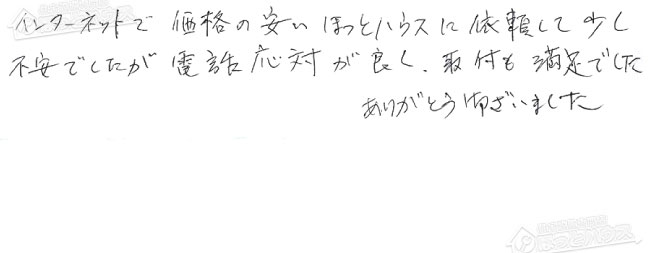 インターネットで 価格の安い ほっとハウスに 依頼して 少し
不安でしたが 電話応対が良く、取付も 満足でした
ありがとうございました